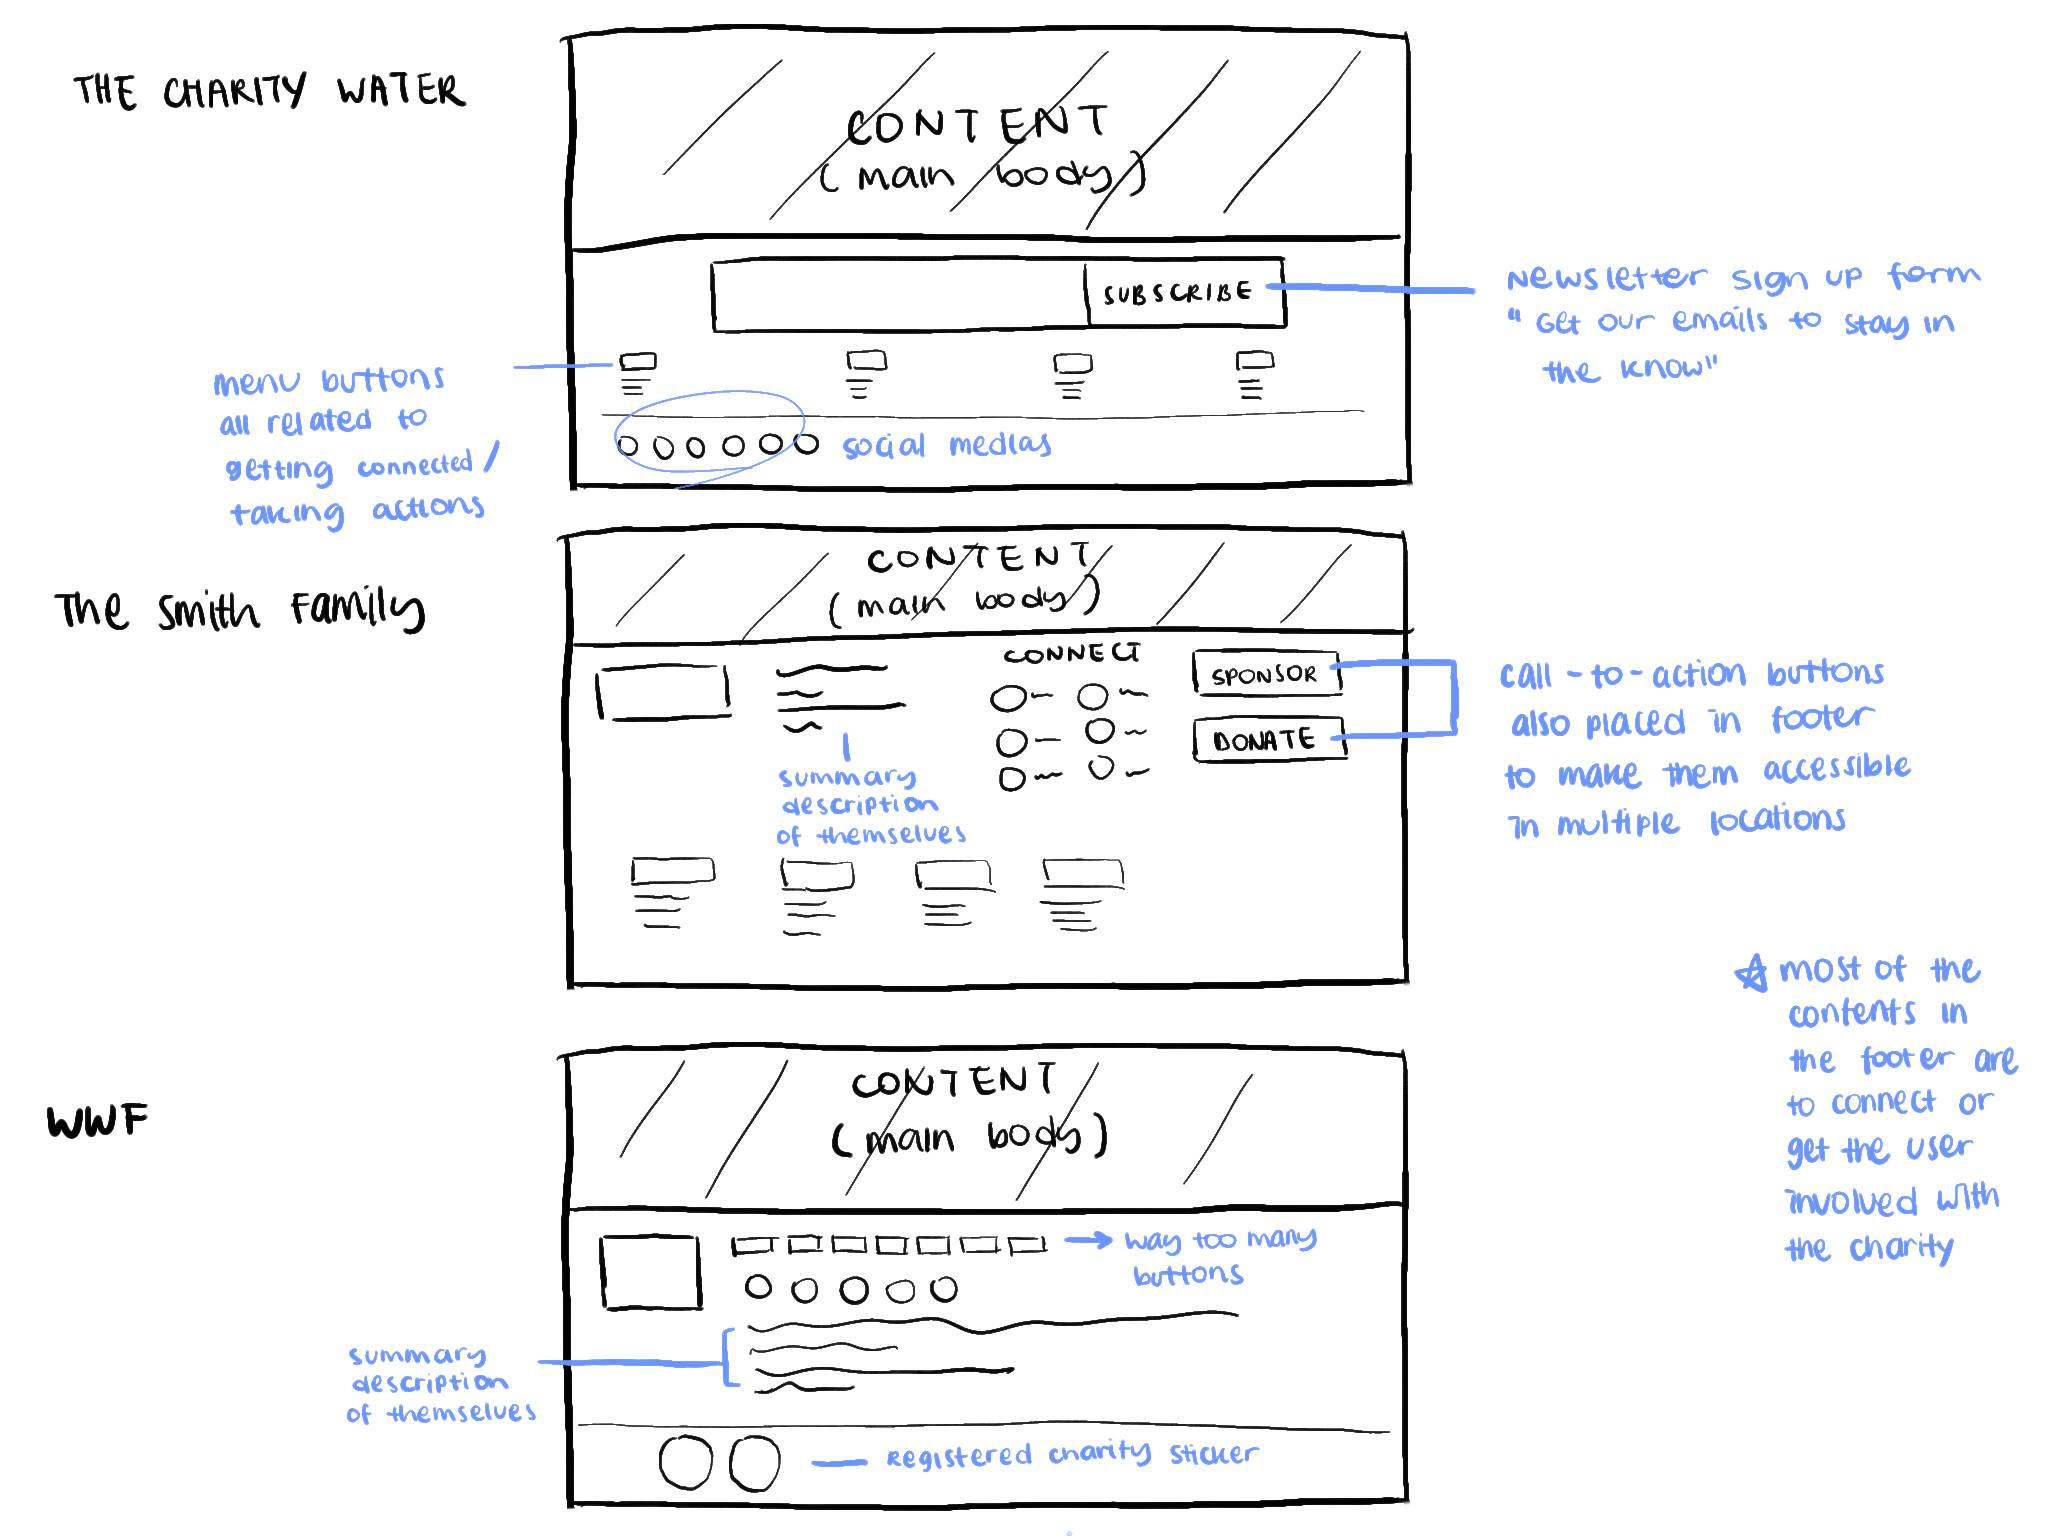 THE CHARITY WATER
CONTENT
(main body)
SUBSCRIBE
Newsletter sign up form
"Get our emails to stay in
the know"
menu buttons
all related to
getting connected/
taking actions
social medias
The Smith Family
CONTENT
(main body)
CONNECT
SPONSOR
DONATE
summary
description
of themselves
call-to-action buttons
also placed in footer
to make them accessible
in multiple locations
most of the
contents in
the footer are
to connect or
get the user
involved with
the charity
WWF
CONTENT
(main body)
way too many
buttons
summary
description
of themselves
Registered charity sticker